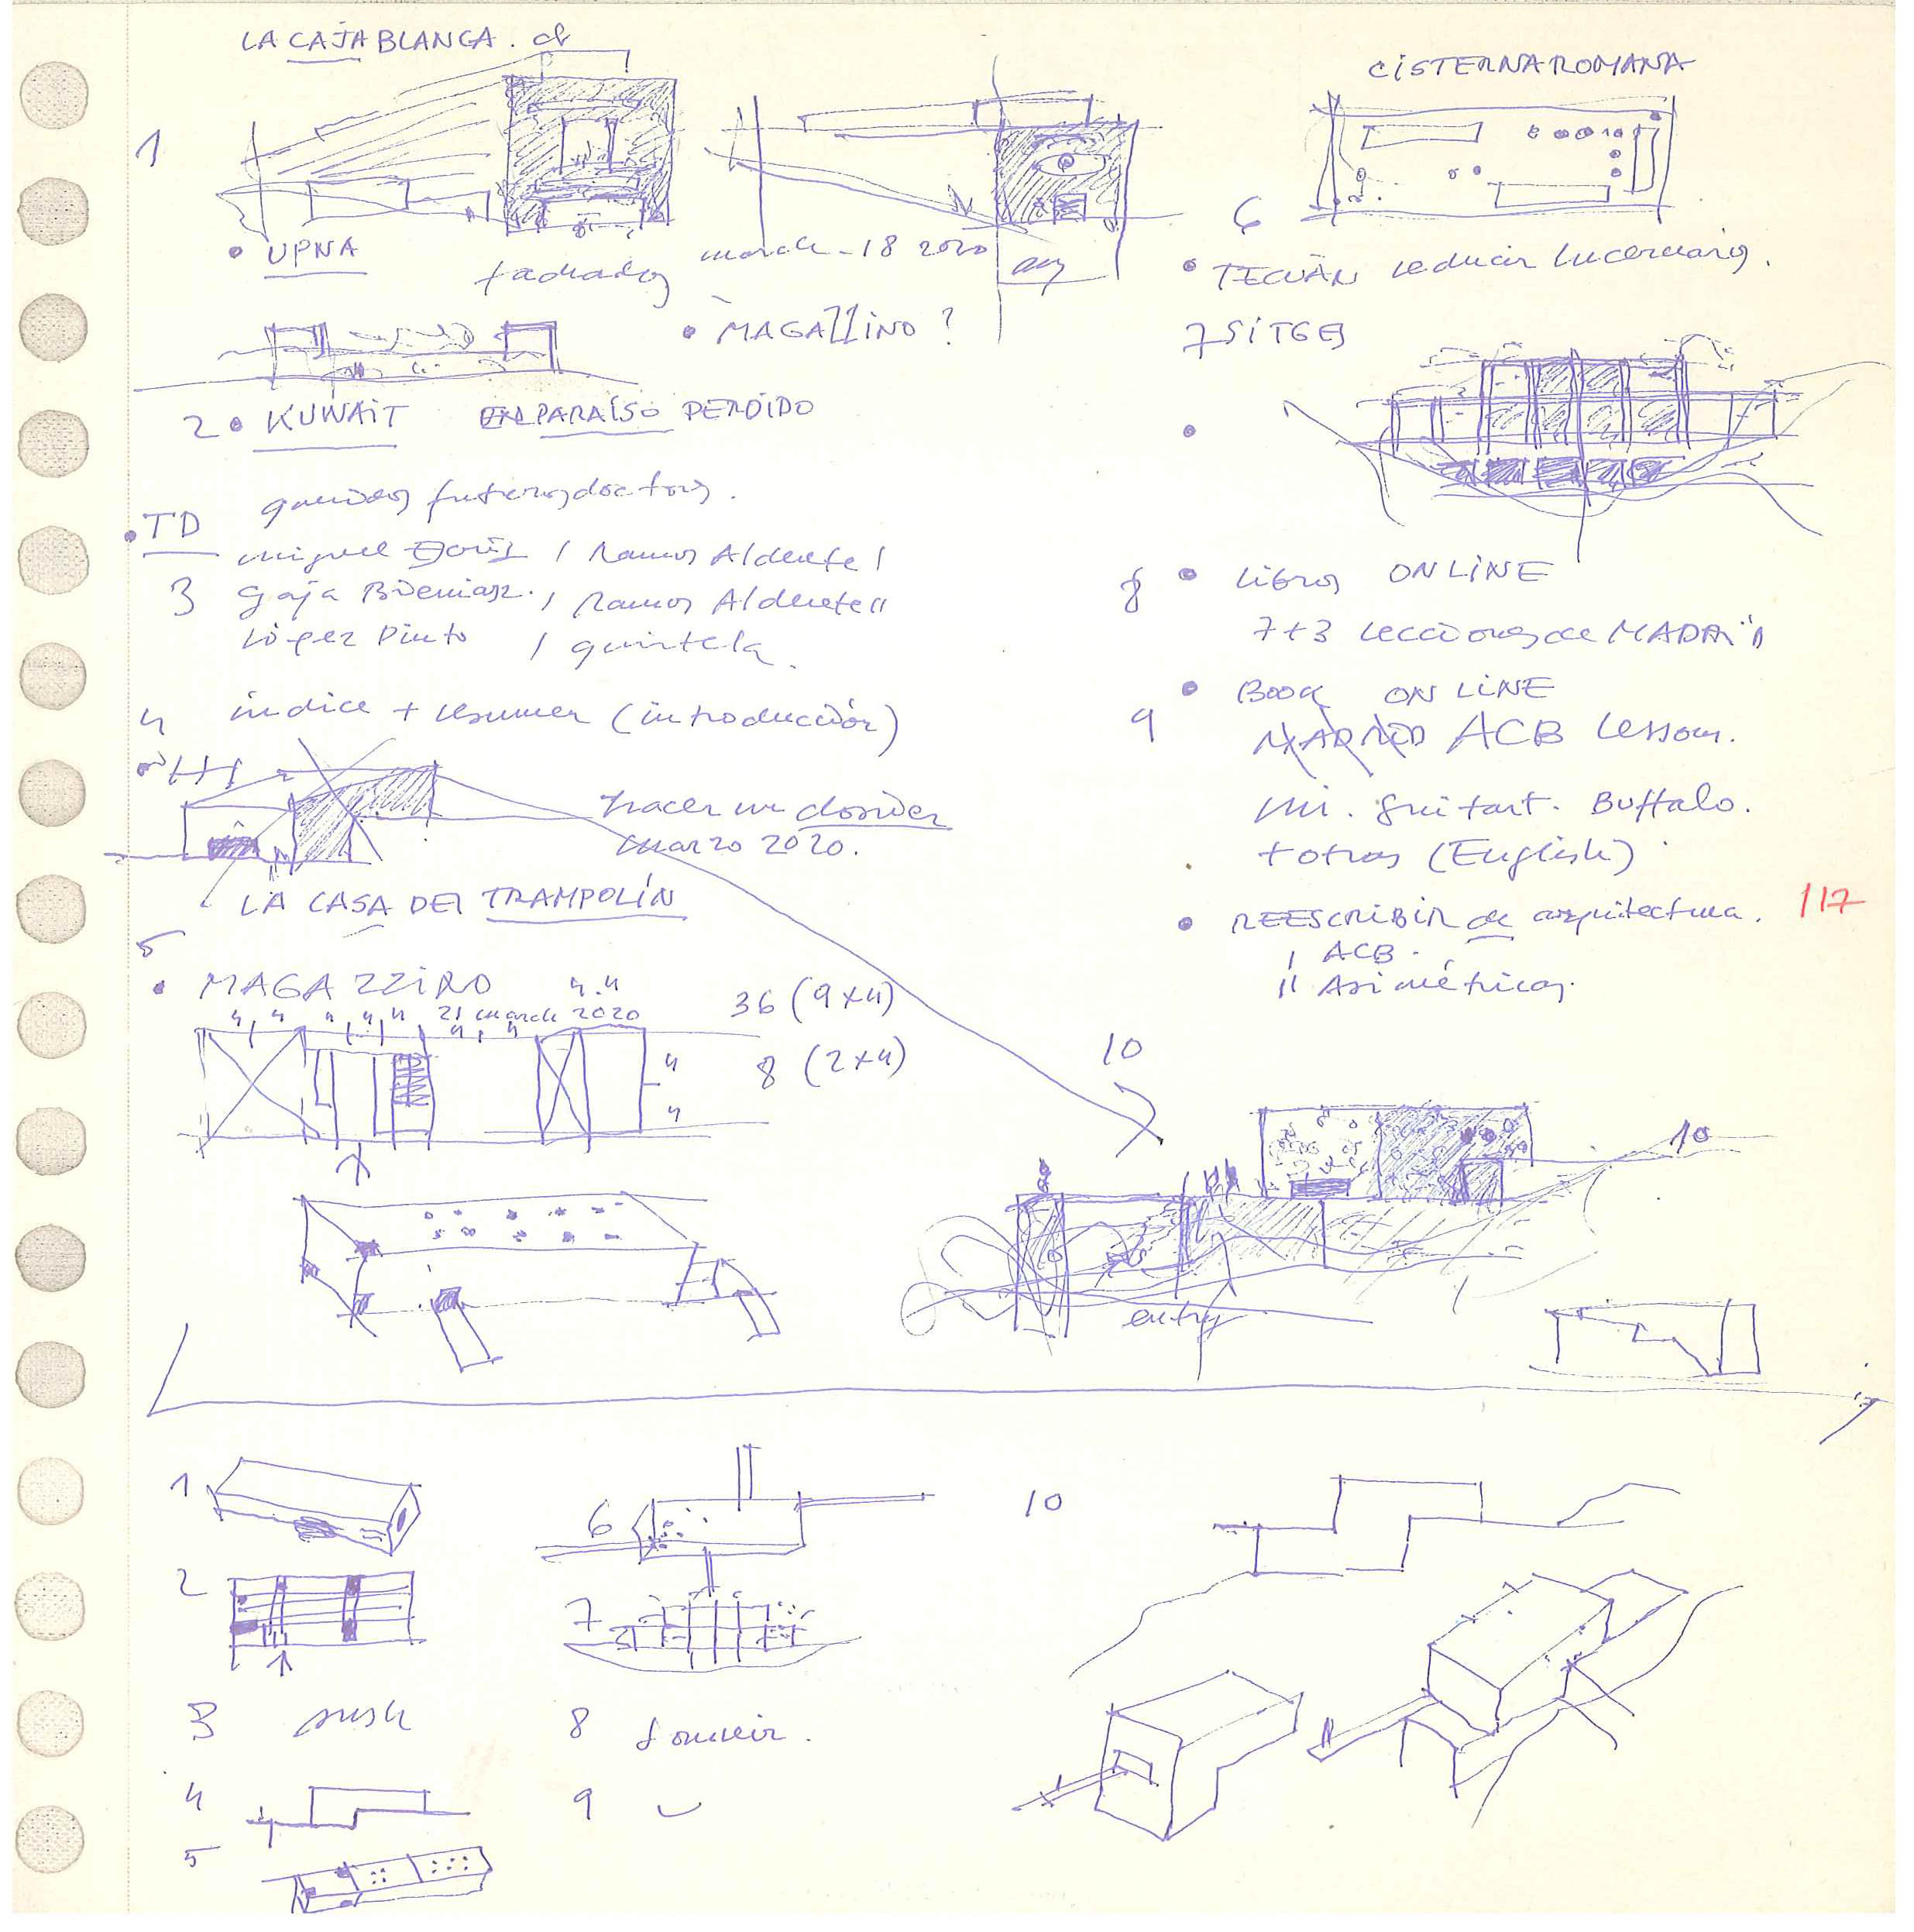 LA CAJA BLANCA.
1
• UPNA
fachadas
march - 18 2020
• MAGAZZINO ?
2 • KUWAIT EN PARAÍSO PERDIDO
queridos futuros doctores.
• TD
miguel / Ramos Alderete I
3 Gaja Bieniasz. / Ramos Alderete II
López Pinto / quintela.
4 índice + resumen (introducción)
hacer un dossier
marzo 2020.
LA CASA DEL TRAMPOLÍN
5
• MAGAZZINO 4.4
4 4 4 4 4 21 march 2020
4 4
36 (9x4)
8 (2x4)
4
4
CISTERNA ROMANA
6
• TECUÁN reducir lucernarios.
7 SITGES
8 • libros ONLINE
7+3 lecciones de MADRID
• BOOK ON LINE
9 MADRID ACB lessons.
mi. guitart. Buffalo.
+ otros (English)
• REESCRIBIR de arquitectura. 117
I ACB.
II Asimétricas.
10
10
entry
1
2
3
4
5
6
7
8
9
10